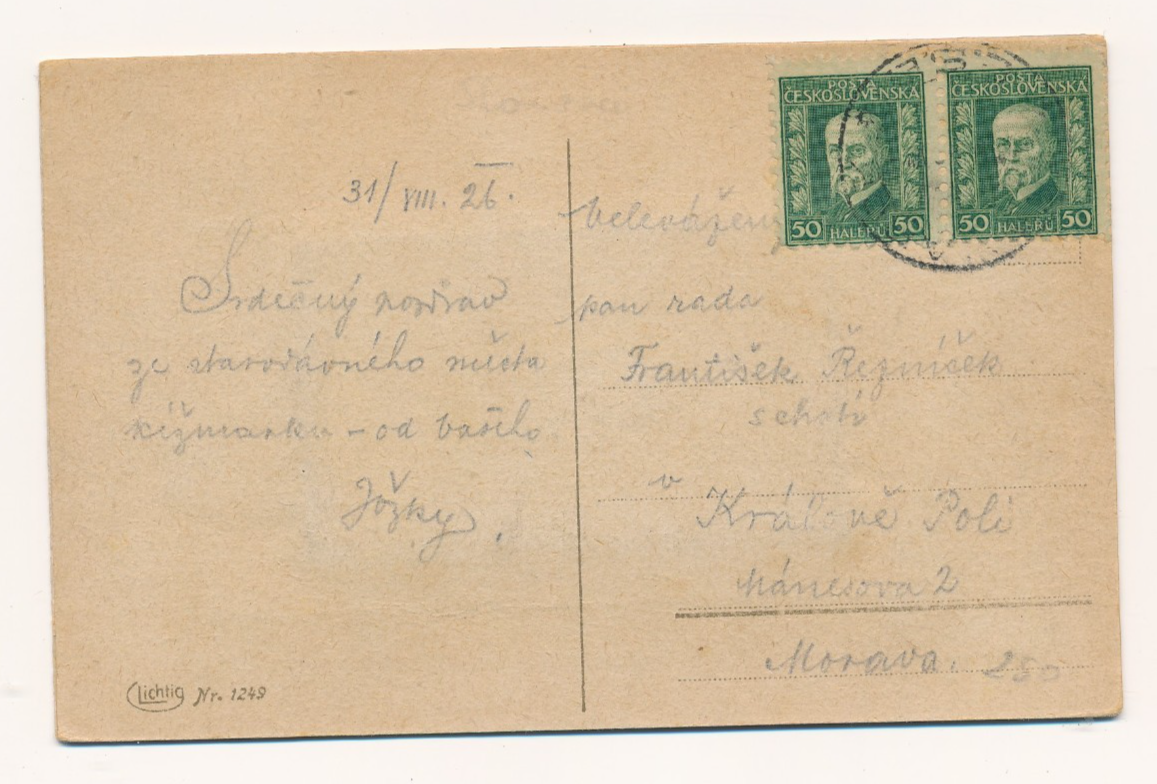 31/VIII. 26.
Srdečný pozdrav
ze starodávného města
Kežmarku – od Vašeho
Jožky.
Lichtig Nr. 1249
POŠTA
ČESKOSLOVENSKÁ
50 HALÉŘŮ 50
POŠTA
ČESKOSLOVENSKÁ
50 HALÉŘŮ 50
Velevážený
pan rada
František Řezníšek
v
Králově Poli
Mánesova 2
Morava.
250